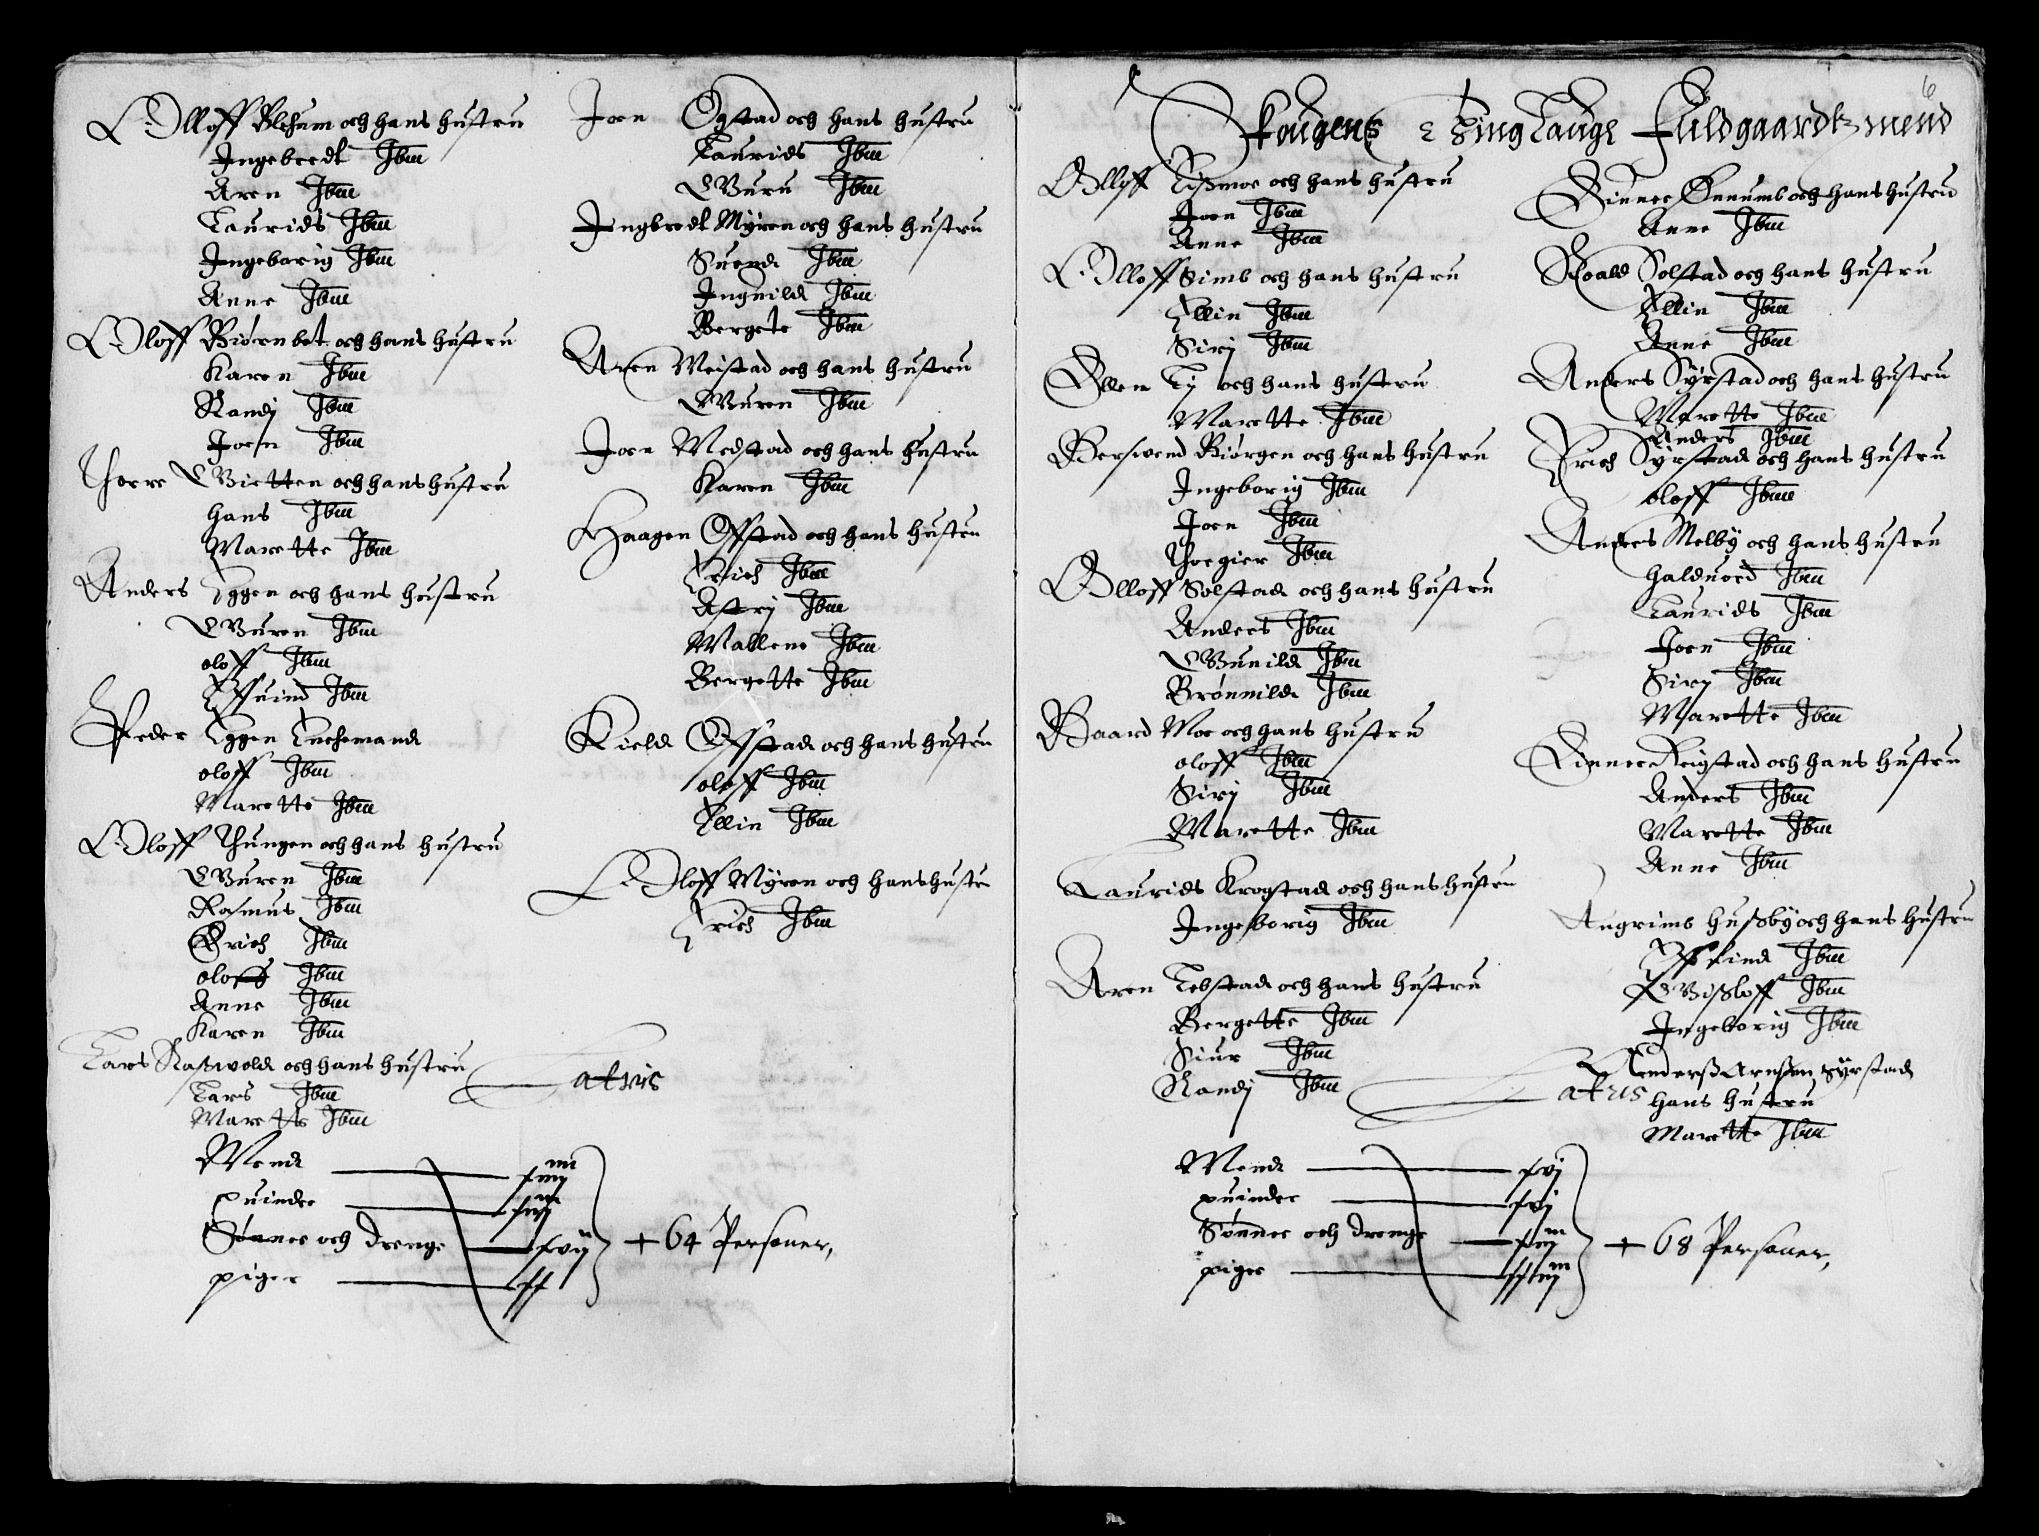 Olloff Blehum och hans hustru
Ingebredt Ibm
Aren Ibm
Laurids Ibm
Ingeborig Ibm
Anne Ibm
Oloff Biørnbet och hans hustru
Karen Ibm
Randj Ibm
Joen Ibm
Thorre och hans hustru
Hans Ibm
Marette Ibm
Anders Eggen och hans hustru
Guren Ibm
oloff Ibm
Effuind Ibm
Peder Eggen Enchemand
oloff Ibm
Marette Ibm
Oloff Thungen och hans hustru
Guren Ibm
Rasmus Ibm
Erich Ibm
oloff Ibm
Anne Ibm
Karen Ibm
Lars Raswold och hans hustru
Lars Ibm
Marette Ibm
Joen Ogstad och hans hustru
Laurids Ibm
Guru Ibm
Ingbredt Myren och hans hustru
Suend Ibm
Ingeuild Ibm
Bergete Ibm
Aren Meistad och hans hustru
Guren Ibm
Joen Medstad och hans hustru
Karen Ibm
Haagen Offstad och hans hustru
Erich Ibm
Astrj Ibm
Mallene Ibm
Bergette Ibm
Kield Offstad och hans hustru
oloff Ibm
Ellin Ibm
Oloff Myren och hans hustru
Erich Ibm
Latvis
Mend
quinder
Sønner och drenge xvij
piger xx
+ 64 Personer,
6
Skougens Tinglaugs Fuldgaards mend
Olloff Lismoe och hans hustru
Joen Ibm
Anne Ibm
Olloff Simb och hans hustru
Ellin Ibm
Sirj Ibm
Ellen Ly och hans hustru
Marette Ibm
Berswend Biørgen och hans hustru
Ingeborig Ibm
Joen Ibm
Thoegier Ibm
Olloff Solstad och hans hustru
Anders Ibm
Gunild Ibm
Brønnild Ibm
Baard Moe och hans hustru
oloff Ibm
Sirj Ibm
Marette Ibm
Laurids Krogstad och hans hustru
Ingeborig Ibm
Aren Lebstad och hans hustru
Bergette Ibm
Siur Ibm
Randj Ibm
Einner Onnumb och hans hustru
Anne Ibm
Roald Solstad och hans hustru
Ellin Ibm
Anne Ibm
Anders Syrstad och hans hustru
Marette Ibm
Anders Ibm
Erich Syrstad och hans hustru
oloff Ibm
Anders Melby och hans hustru
Halduord Ibm
Laurids Ibm
Joen Ibm
Sirj Ibm
Marette Ibm
Einner Reigstad och hans hustru
Anders Ibm
Marette Ibm
Anne Ibm
Angrimb Husby och hans hustru
Effuind Ibm
Gisloff Ibm
Ingeborig Ibm
Anders Arnsen Syrstad
hans hustru
Marette Ibm
Latus
Mend xvj
quinder xvj
Sønner och drenge
piger
+ 68 Personer,